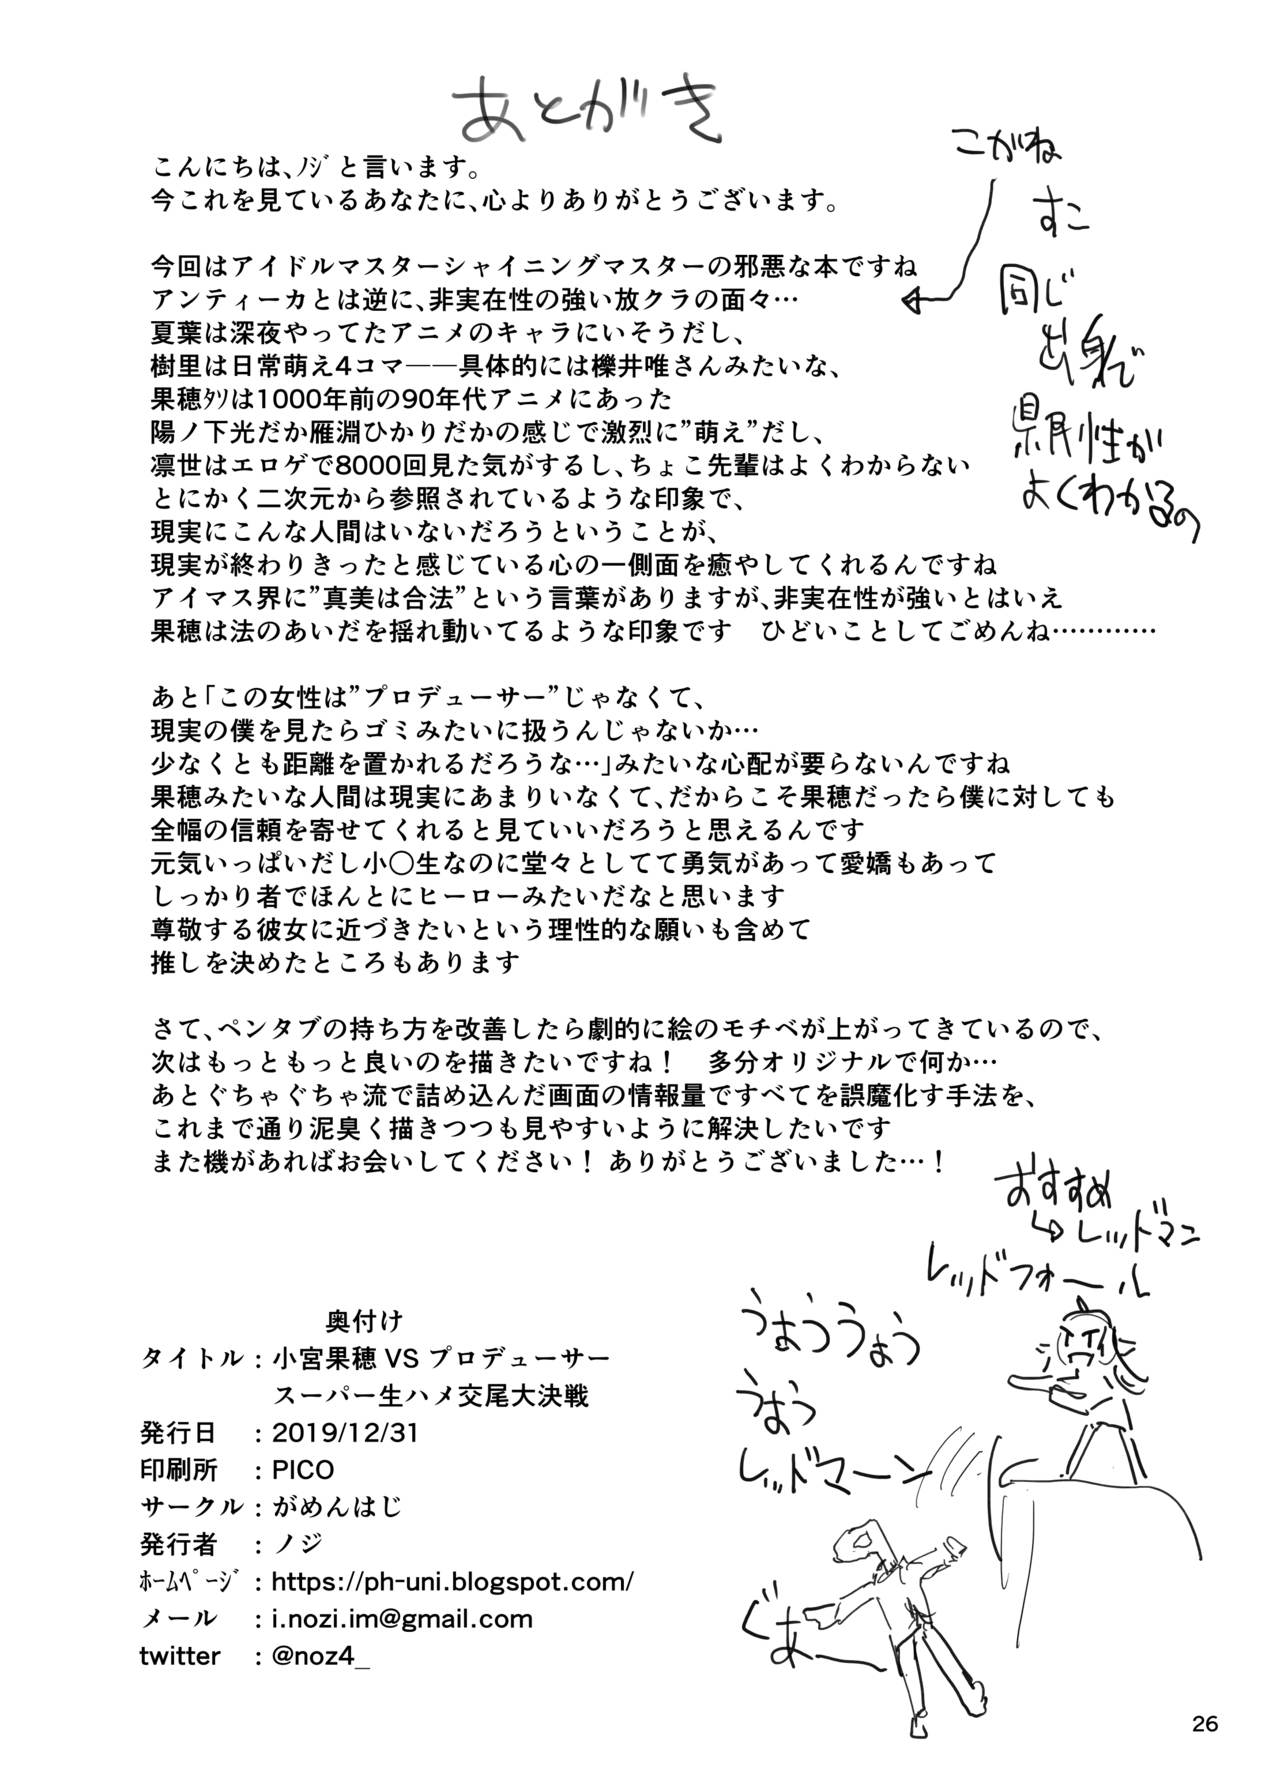 あとがき
こんにちは、ノジと言います。
今これを見ているあなたに、心よりありがとうございます。
今回はアイドルマスターシャイニングマスターの邪悪な本ですね
アンティーカとは逆に、非実在性の強い放クラの面々…
夏葉は深夜やってたアニメのキャラにいそうだし、
樹里は日常萌え4コマ――具体的には櫟井唯さんみたいな、
果穂ﾀｿは1000年前の90年代アニメにあった
陽ノ下光だか雁淵ひかりだかの感じで激烈に”萌え”だし、
凛世はエロゲで8000回見た気がするし、ちょこ先輩はよくわからない
とにかく二次元から参照されているような印象で、
現実にこんな人間はいないだろうということが、
現実が終わりきったと感じている心の一側面を癒やしてくれるんですね
アイマス界に”真美は合法”という言葉がありますが、非実在性が強いとはいえ
果穂は法のあいだを揺れ動いてるような印象です　ひどいことしてごめんね…………
こがね
すこ
同じ
出身で
県民性が
よくわかるの
あと「この女性は”プロデューサー”じゃなくて、
現実の僕を見たらゴミみたいに扱うんじゃないか…
少なくとも距離を置かれるだろうな…」みたいな心配が要らないんですね
果穂みたいな人間は現実にあまりいなくて、だからこそ果穂だったら僕に対しても
全幅の信頼を寄せてくれると見ていいだろうと思えるんです
元気いっぱいだし小〇生なのに堂々としてて勇気があって愛嬌もあって
しっかり者でほんとにヒーローみたいだなと思います
尊敬する彼女に近づきたいという理性的な願いも含めて
推しを決めたところもあります
さて、ペンタブの持ち方を改善したら劇的に絵のモチベが上がってきているので、
次はもっともっと良いのを描きたいですね！　多分オリジナルで何か…
あとぐちゃぐちゃ流で詰め込んだ画面の情報量ですべてを誤魔化す手法を、
これまで通り泥臭く描きつつも見やすいように解決したいです
また機があればお会いしてください！ ありがとうございました…！
おすすめ
レッドマン
レッドフォール
うぉううぉう
うぉう
レッドマーン
ぐあー
奥付け
タイトル：小宮果穂 VS プロデューサー
スーパー生ハメ交尾大決戦
発行日　：2019/12/31
印刷所　：PICO
サークル：がめんはじ
発行者　：ノジ
ﾎｰﾑﾍﾟｰｼﾞ：https://ph-uni.blogspot.com/
メール　：i.nozi.im@gmail.com
twitter　：@noz4_
26